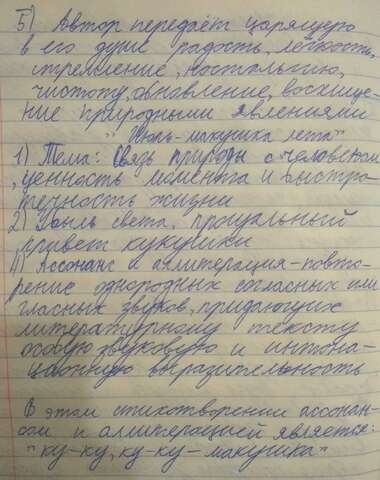 5) Автор передаёт царящую
в его душе радость, лёгкость,
стремление, ностальгию,
чистоту, обновление, восхище-
ние природными явлениями
"Июль-макушка лета"
1) Тема: Связь природы с человеком
, ценность момента и быстро-
течность жизни
2) Боль света, прощальный
привет кукушки
4) Ассонанс и аллитерация-повто-
рение однородных согласных или
гласных звуков, придающих
литературному тексту
особую звуковую и интона-
ционную выразительность
В этом стихотворении ассонан-
сом и аллитерацией является:
"ку-ку, ку-ку-макушка"